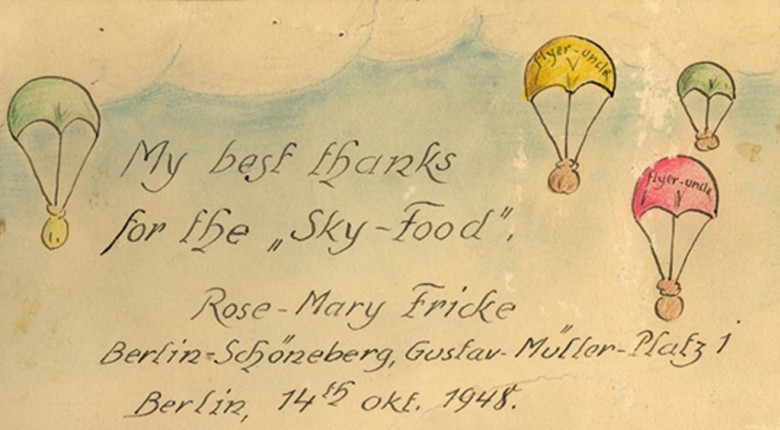 flyer-uncle
flyer-uncle
My best thanks
for the „Sky-Food".
Rose-Mary Fricke
Berlin-Schöneberg, Gustav-Müller-Platz 1
Berlin, 14th Okt. 1948.